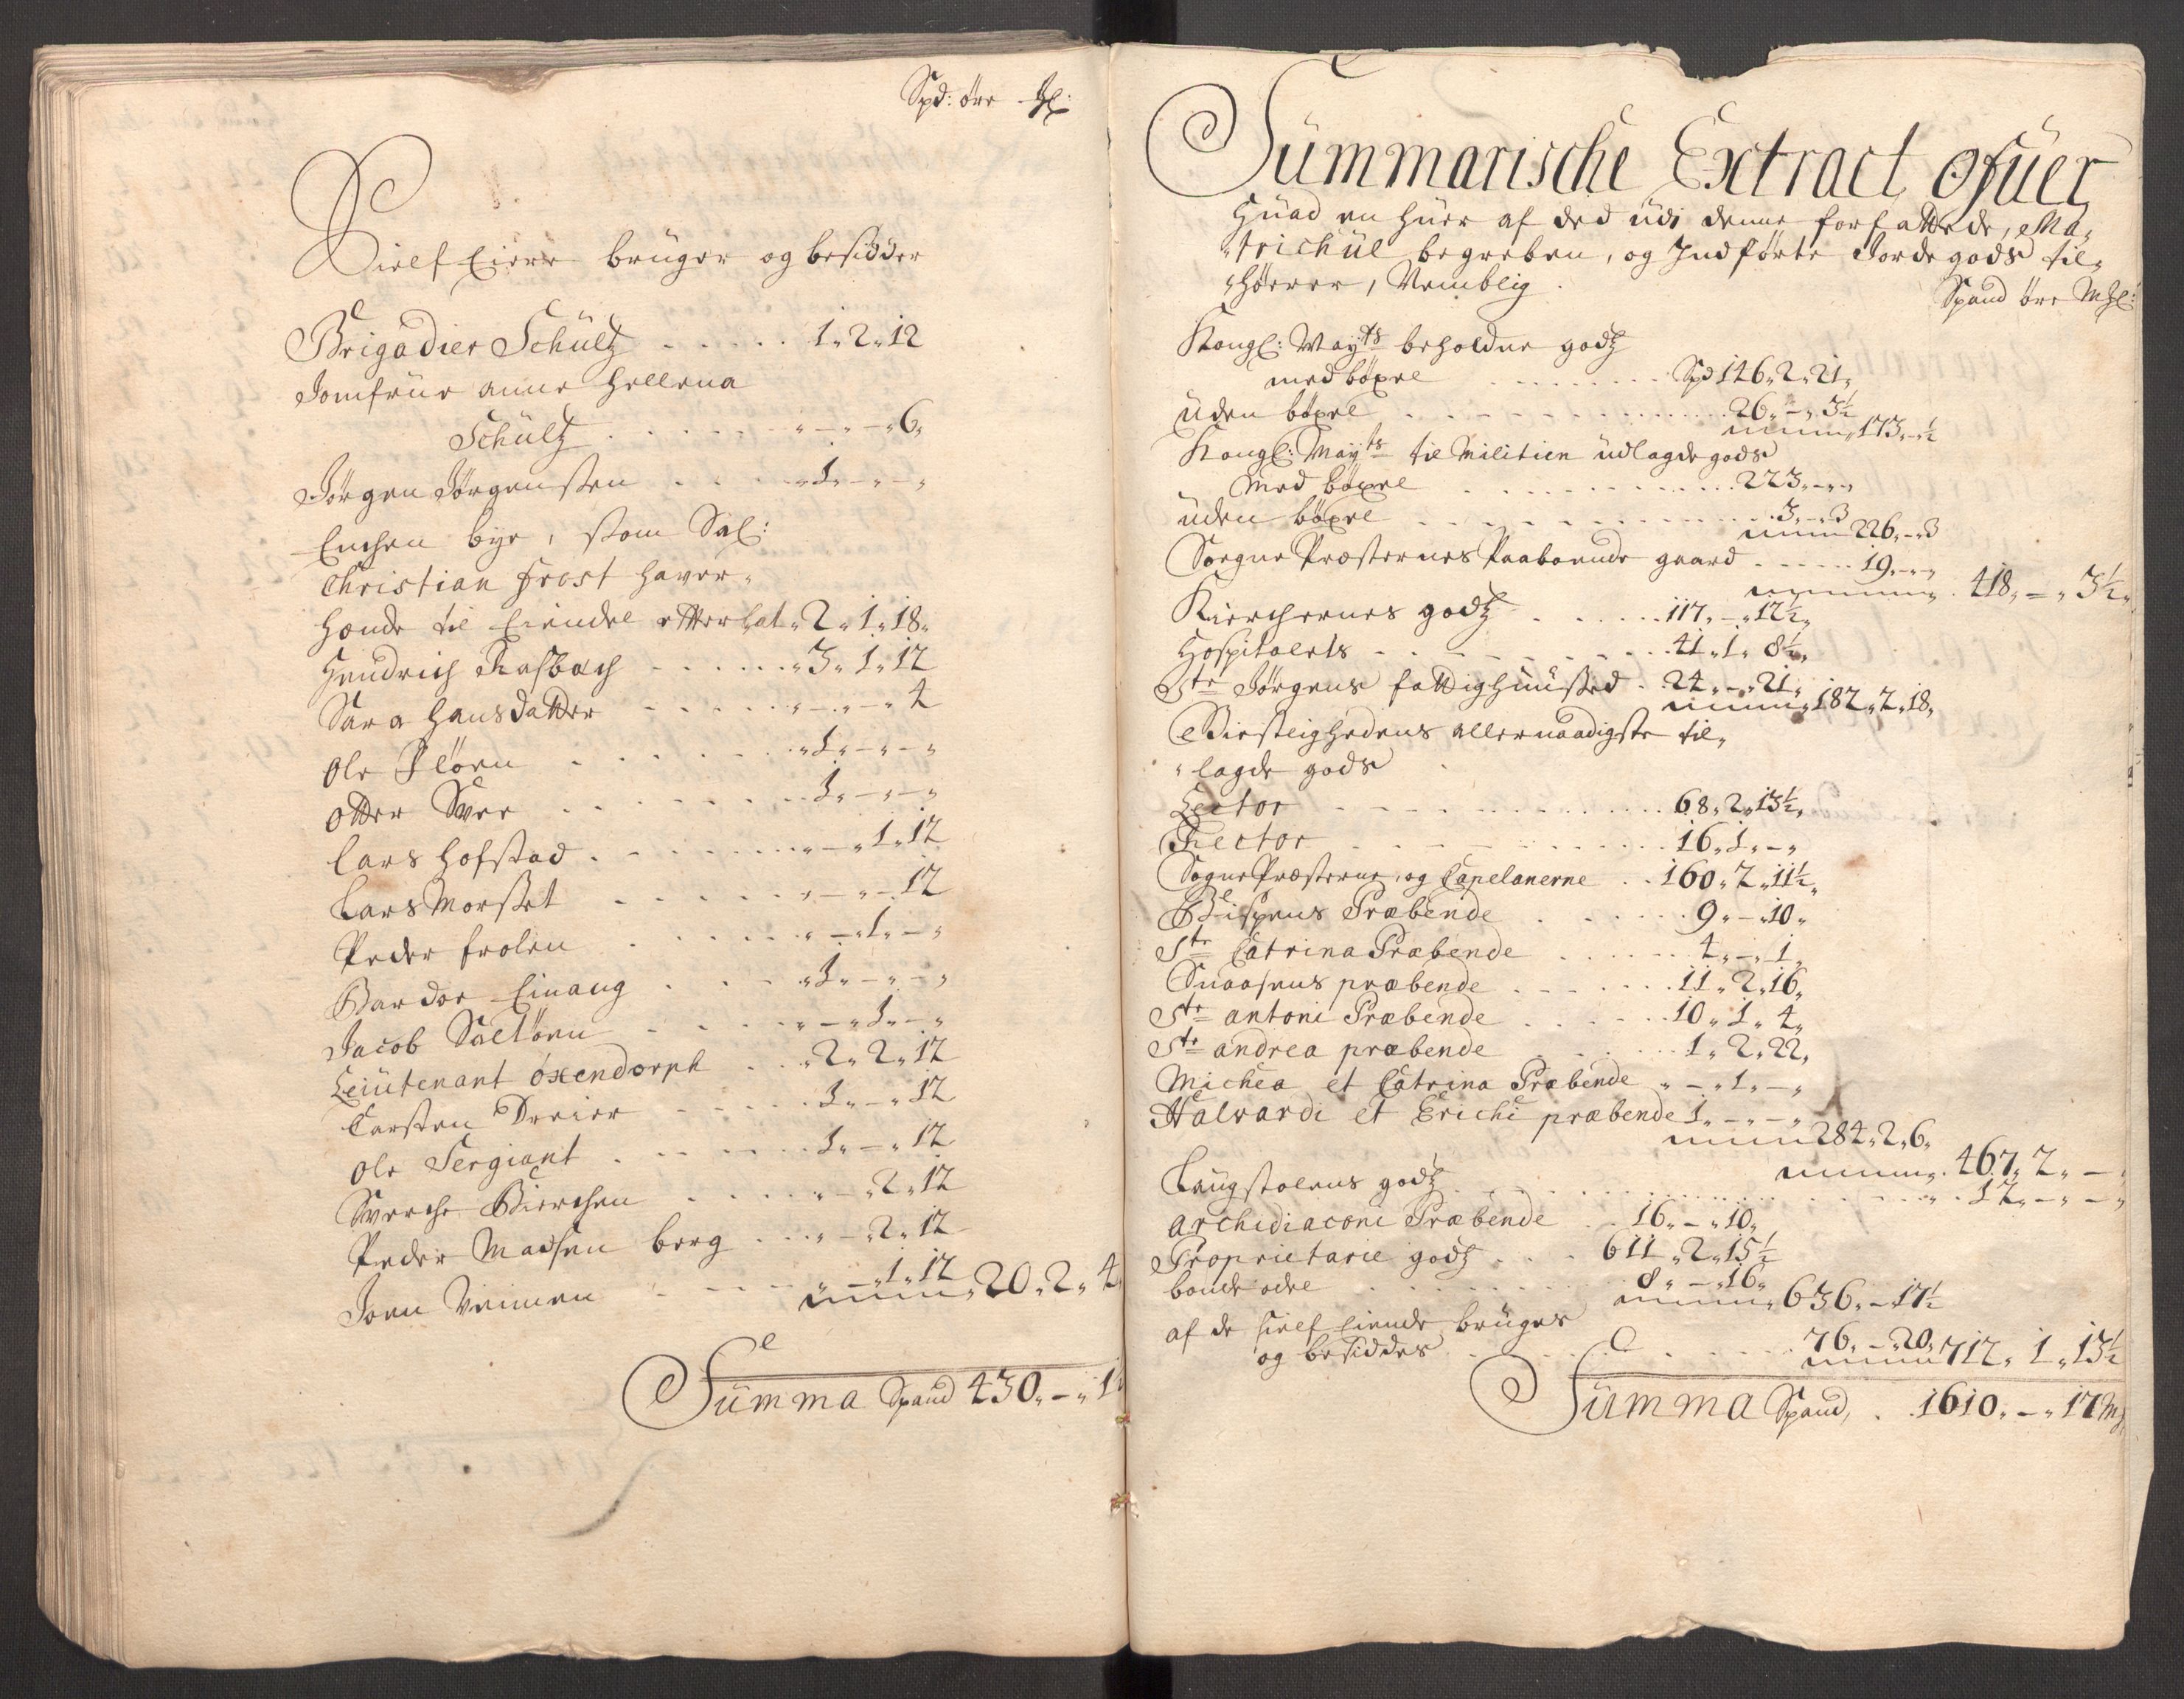 Spd: öre Ml:
Sielf Eiere bruger og besidder
Brigadier Schültz . . . . . 1 " 2 " 12
Jomfrue anne Hellena
Schültz . . . . . . " — " — " 6 "
Jörgen Jörgensen . . . . " 1 " — " — "
Enchen bye, som Sal:
Christian Frost haver "
hende til Eiendel etterlat " 2 " 1 " 18 "
Hendrich Rasbach . . . . . " 3 " 1 " 12
Sara hansdatter . . . . . " — " — " 4
Ole Floen . . . . . . " 1 " — " — "
Otter Svee . . . . . . . 1 " — " — "
Lars Hofstad . . . . . . " — " 1 " 12
Lars Morset . . . . . . " — " — " 12
Peder frolen . . . . . " — " 1 " — "
Bardor Einang . . . . " 1 " — " — "
Jacob Saltöen . . . . " — " 1 " — "
Leiutenant öxendorph . . " 2 " 2 " 12
Carsten Dreier . . . . . 1 " — " 12
Ole Sergiant . . . . . . 1 " — " 12
Sverche Bierchen . . . . " — " 2 " 12
Peder Madsen berg . . . " — " 2 " 12
Joen Veimen . . . . " — " 1 " 12
20 " 2 " 4
Summa Spand 430 " — " 1
Summarische Extract ofuer
Huad en huer af ded udi denne forfattede, Ma "
" trichül begreben, og Indförte Jordegods til "
" hörer, Nemblig .
Spand öre Ml:
Kongl: Mayts beholdne godtz
med böxel . . . . . . . Spd 146 " 2 " 21 "
uden böxel . . . . . . . . . 26 " — " 3½
173 " — " ½
Kongl: Mayts til Militien udlagde gods
Med böxel . . . . . . . . 223 " — " — "
uden böxel . . . . . . . . . . 3 " — " 3
226 " — " 3
Sogne Præsternes Paaboende gaard . . . . . . 19 " — " — "
418 " — " 3½ "
Kierchernes godtz . . . . . 117 " — " 12½ "
Hospitalets . . . . . . . . . 41 " 1 " 8½ "
Ste Jörgens fattighuused . . 24 " — " 21 "
182 " 2 " 18 "
Giestlighedens allernaadigste til "
" lagde gods
Lector . . . . . . . . . . 68 " 2 " 13½ "
Rector . . . . . . . . . . 16 " 1 " — "
Sogne Præsterne, og Capelanerne . . 160 " 2 " 11½ "
Bispens Præbende . . . . . . 9 " — " 10 "
Ste Catrina Præbende . . . . . . 4 " — " 1 "
Snaasens præbende . . . . . . . 11 " 2 " 16 "
Ste antoni Præbende . . . . . . 10 " 1 " 4 "
Ste andrea præbende . . . . . 1 " 2 " 22 "
Michéa et Catrina Præbende " — " 1 " — "
Halvardi et Erichi præbende 1 " — " — "
284 " 2 " 6 "
467 " 2 " — "
Laugstolens godtz . . . . . . . . . . . . . . . 12 " — " — "
Archidiaconi Præbende . . 16 " — " 10 "
Proprietarie godtz . . . 611 " 2 " 15½
bonde odel . . . . . . . . 8 " — " 16 "
636 " — " 17½
af de sielf Eiende bruges
og besiddes . . . . . . . . . . 76 " — " 20 "
712 " 1 " 13½
Summa Spand, . . 1610 " — " 17 M